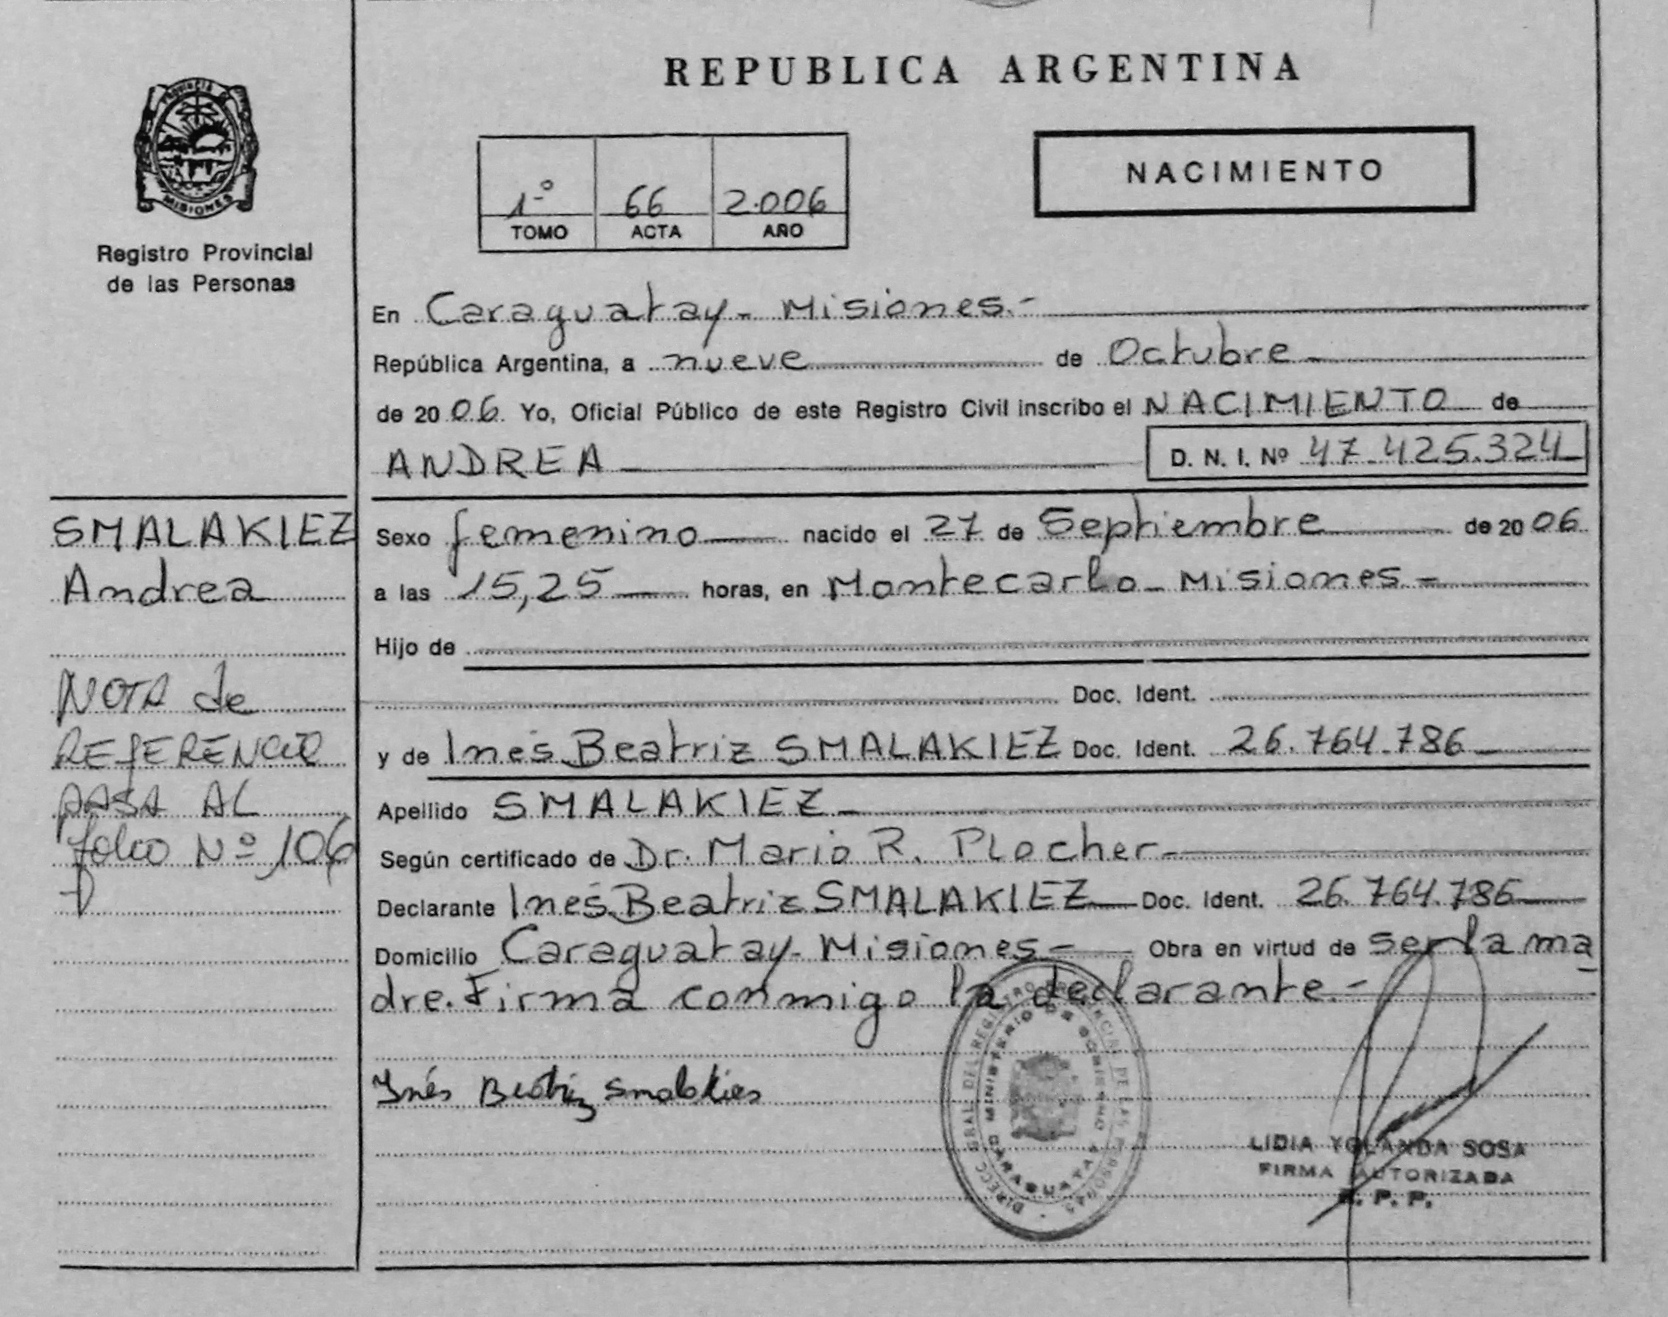 REPUBLICA ARGENTINA
PROVINCIA DE
MISIONES
Registro Provincial
de las Personas
1º 66 2.006
TOMO ACTA AÑO
NACIMIENTO
En Caraguatay - Misiones.-
República Argentina, a nueve de Octubre
de 2006. Yo, Oficial Público de este Registro Civil inscribo el NACIMIENTO de
ANDREA D. N. I. Nº 47.425.324
SMALAKIEZ
Andrea
NOTA de
REFERENCIA
PASA AL
folio Nº 106
Sexo femenino nacido el 27 de Septiembre de 2006
a las 15,25 horas, en Montecarlo - Misiones -
Hijo de
Doc. Ident.
y de Inés Beatriz SMALAKIEZ Doc. Ident. 26.764.786
Apellido SMALAKIEZ
Según certificado de Dr. Mario R. Plocher
Declarante Inés Beatriz SMALAKIEZ Doc. Ident. 26.764.786
Domicilio Caraguatay - Misiones - Obra en virtud de ser la ma
dre. Firma conmigo la declarante.-
Inés Beatriz Smalakies
LIDIA YOLANDA SOSA
FIRMA AUTORIZADA
R. P. P.